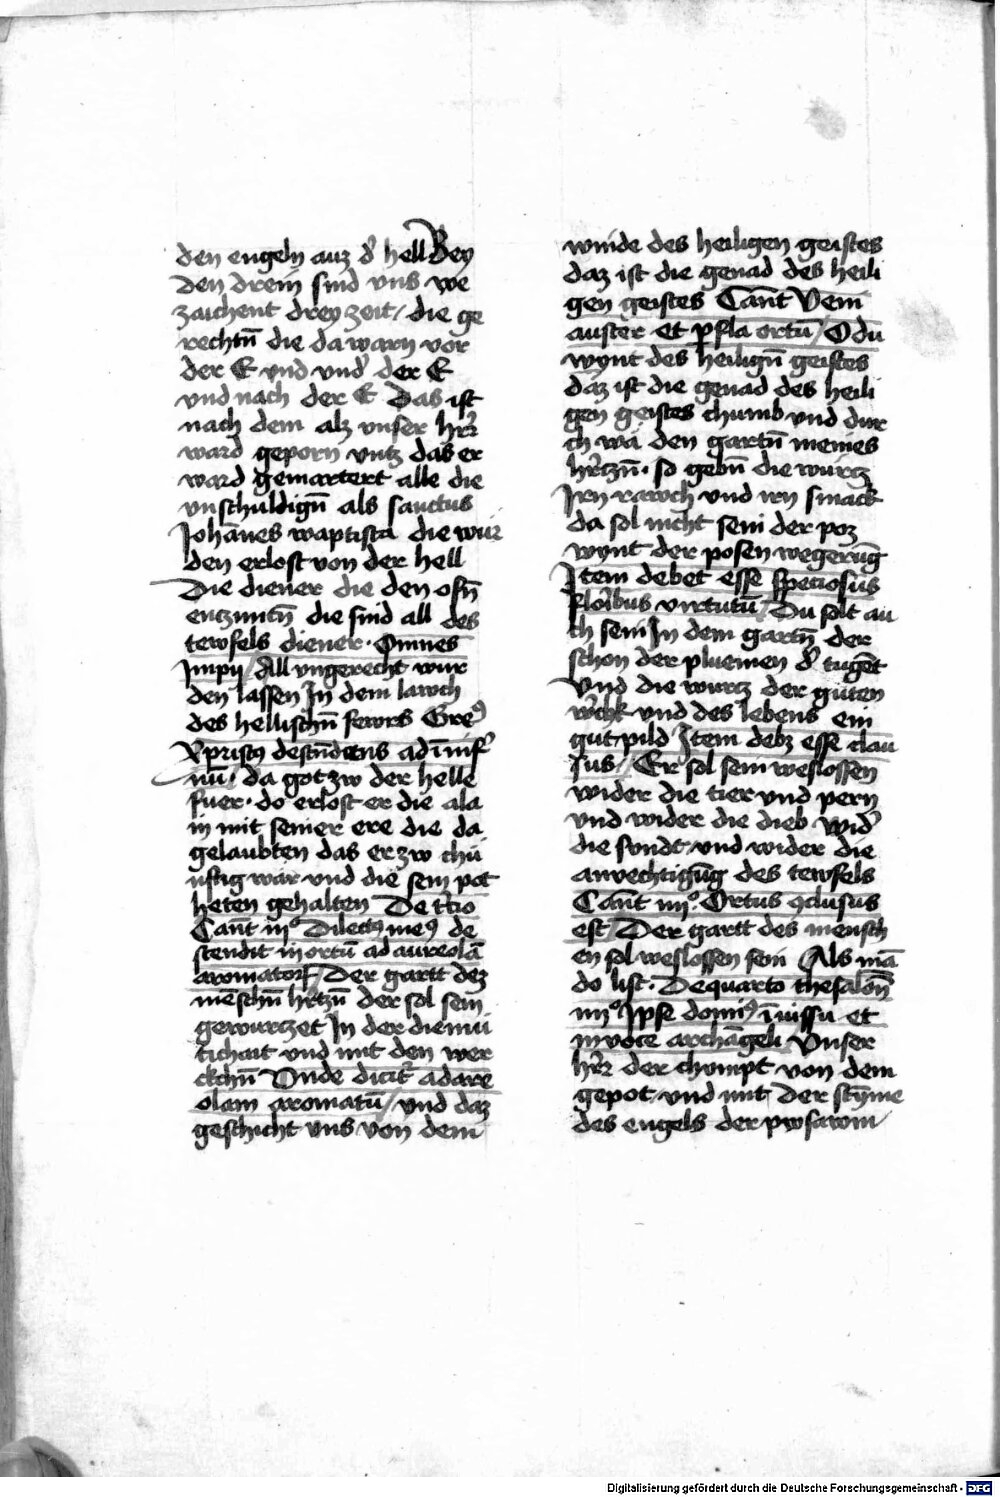 den engeln auz d' hell Bey
den drein sind vns we
zaichent drey zeit / die ge
rechtn̄ die da warn vor
der E vnd vnd' der E
vnd nach der E Das ist
nach dem alz vnser hr̄r
ward geporn vntz das er
ward gemartert alle die
vnschuldign̄ als sanctus
Johānes waptista die wur
den erlost von der hell
Die diener die den ofn̄
entzuntn̄ die sind all des
tewfels diener · Omnes
Impij / All vngerecht wur
den lassen In dem lawch
des hellischn̄ fewrs Gre9
Xpristus descn̄dens ad īnif'
nū · da got zw der helle
fuer · do erlost er die ala
in mit seiner ere die da
gelaubten das er zw chū
nftig wār vnd die sein pot
heten gehalten De t'cio
Can̄t iij° Dilect9 me9 de
scendit in ortū ad aureolā
aromatorꝭ / Der gartt dez
mēschn̄ hr̄tzn̄ der sol sein
gewurczet In der diemü
tichait vnd mit den wer
ckchn̄ Vnde dicit' ad are
olam aromatū / vnd daz
geschicht vns von dem
winde des heiligen geistes
daz ist die genad des heili
gen geistes Can̄t Veni
auster et p̄fla ortū / O du
wynt des heilign̄ geistes
daz ist die genad des heili
gen geistes chumb vnd dur
ch wā den gartn̄ meines
hr̄tzn̄ · so gebn̄ die wurcz
Irn rawch vnd irn smack
da sol nicht sein der poz
wynt der posen wegerūg
Item debet esse speciosus
floribus virtutū / Du solt au
ch sein In dem gartn̄ der
schon der pluemen d' tugēt
Vnd die wurcz der guten
w'chk vnd des lebens ein
gut pild / Item debꝫ esse clau
sus / Er sol sein weslossen
wider die tier vnd pern
vnd wider die dieb wid'
die sundt vnd wider die
anvechtigūg des tewfels
Can̄t iiij° Ortus ꝯclusus
est / Der gartt des mensch
en sol weslossen sein Als mā
do list · De quarto thesalōn̄
iiij° Ipse domin9 ī iussu et
in voce archāgeli Vnser
hr̄r der chumpt von dem
gepot vnd mit der stȳme
des engels der pusawm